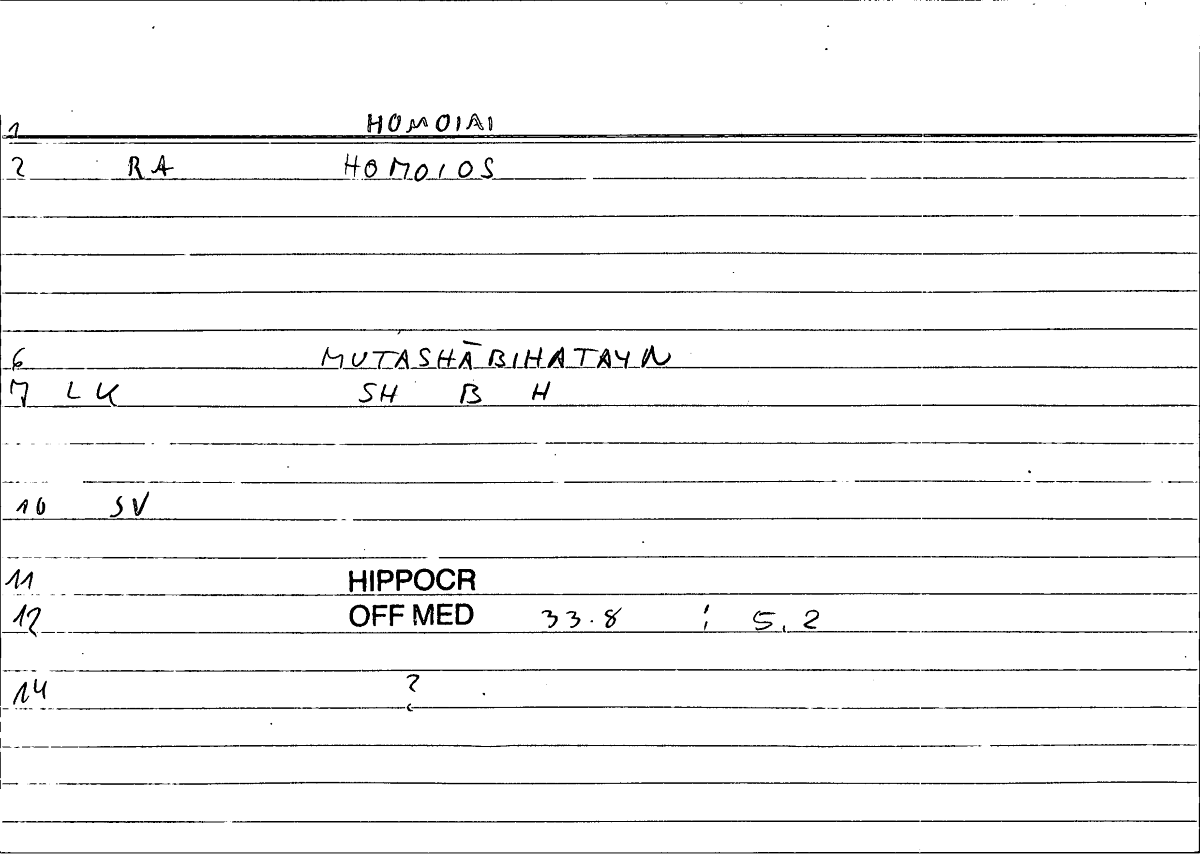 1 HOMOIAI
2 RA HOMOIOS
6 MUTASHĀBIHATAYN
7 LK SH B H
10 SV
11 HIPPOCR
12 OFF MED 33.8 ; 5.2
14 ?